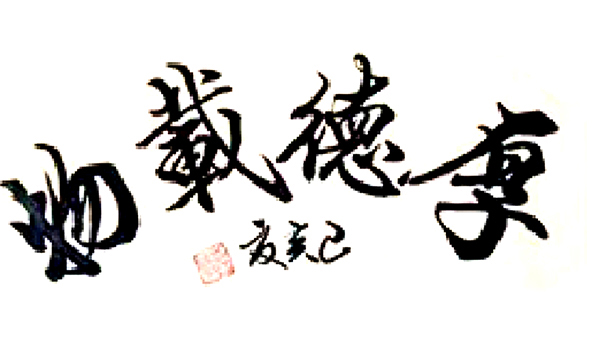 厚德載物
己亥夏